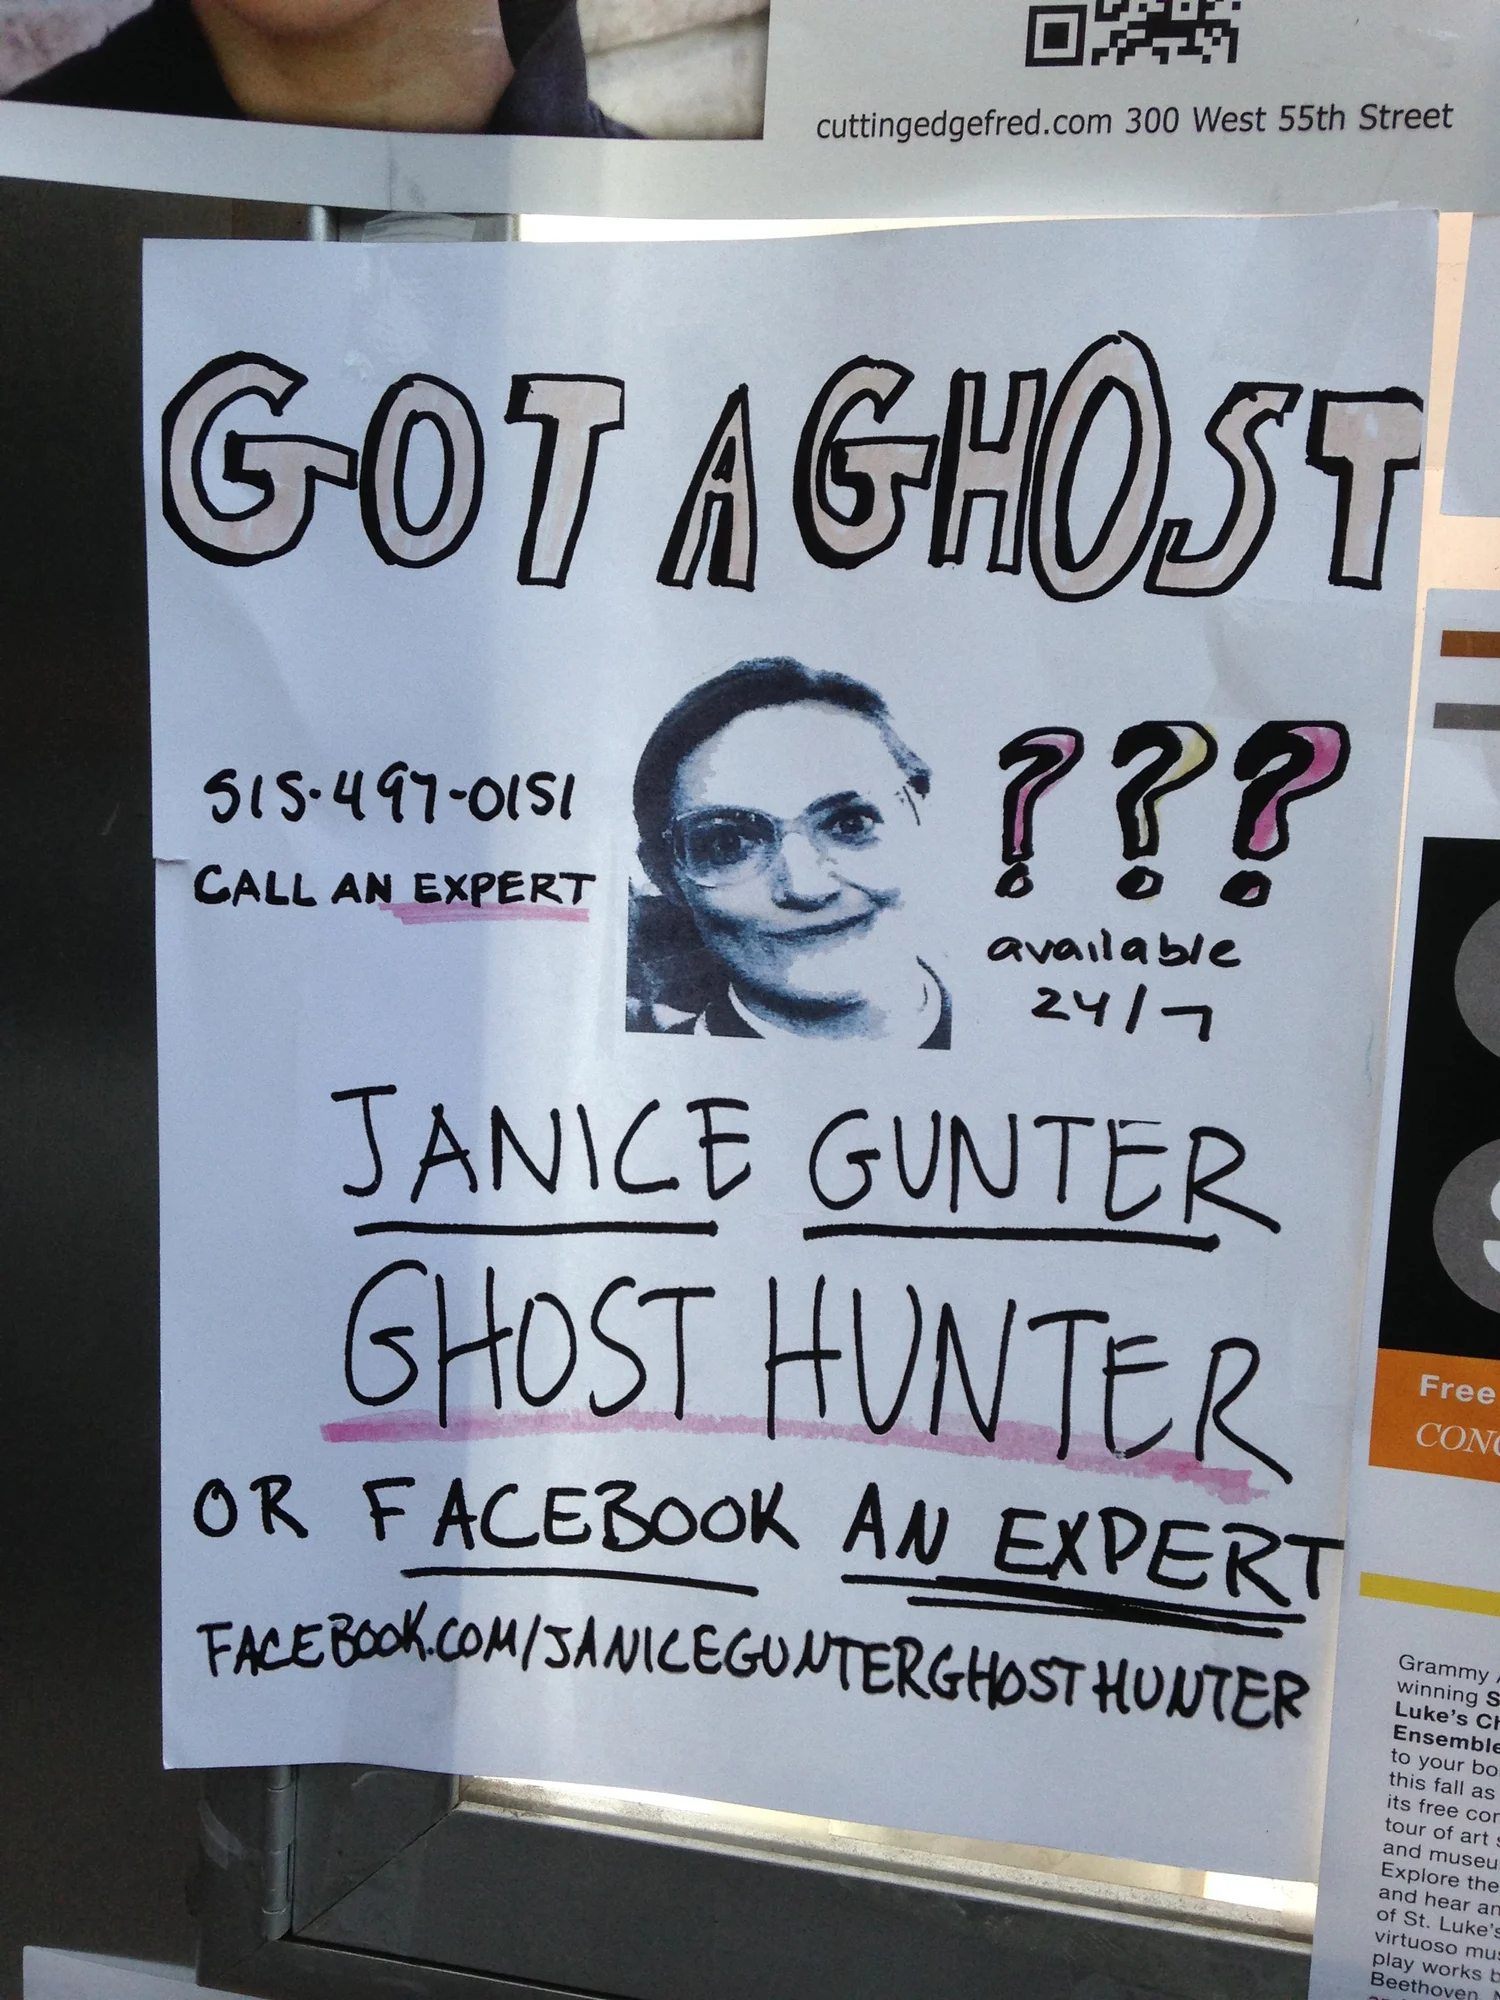 cuttingedgefred.com 300 West 55th Street
GOT A GHOST
???
515-497-0151
CALL AN EXPERT
available
24/7
JANICE GUNTER
GHOST HUNTER
OR FACEBOOK AN EXPERT
FACEBOOK.COM/JANICEGUNTERGHOSTHUNTER
Free
Grammy
winning
Luke's
Ensemble
to your
this fall as
its free
tour of art
and
Explore the
and hear
of St. Luke's
virtuoso
play works
Beethoven